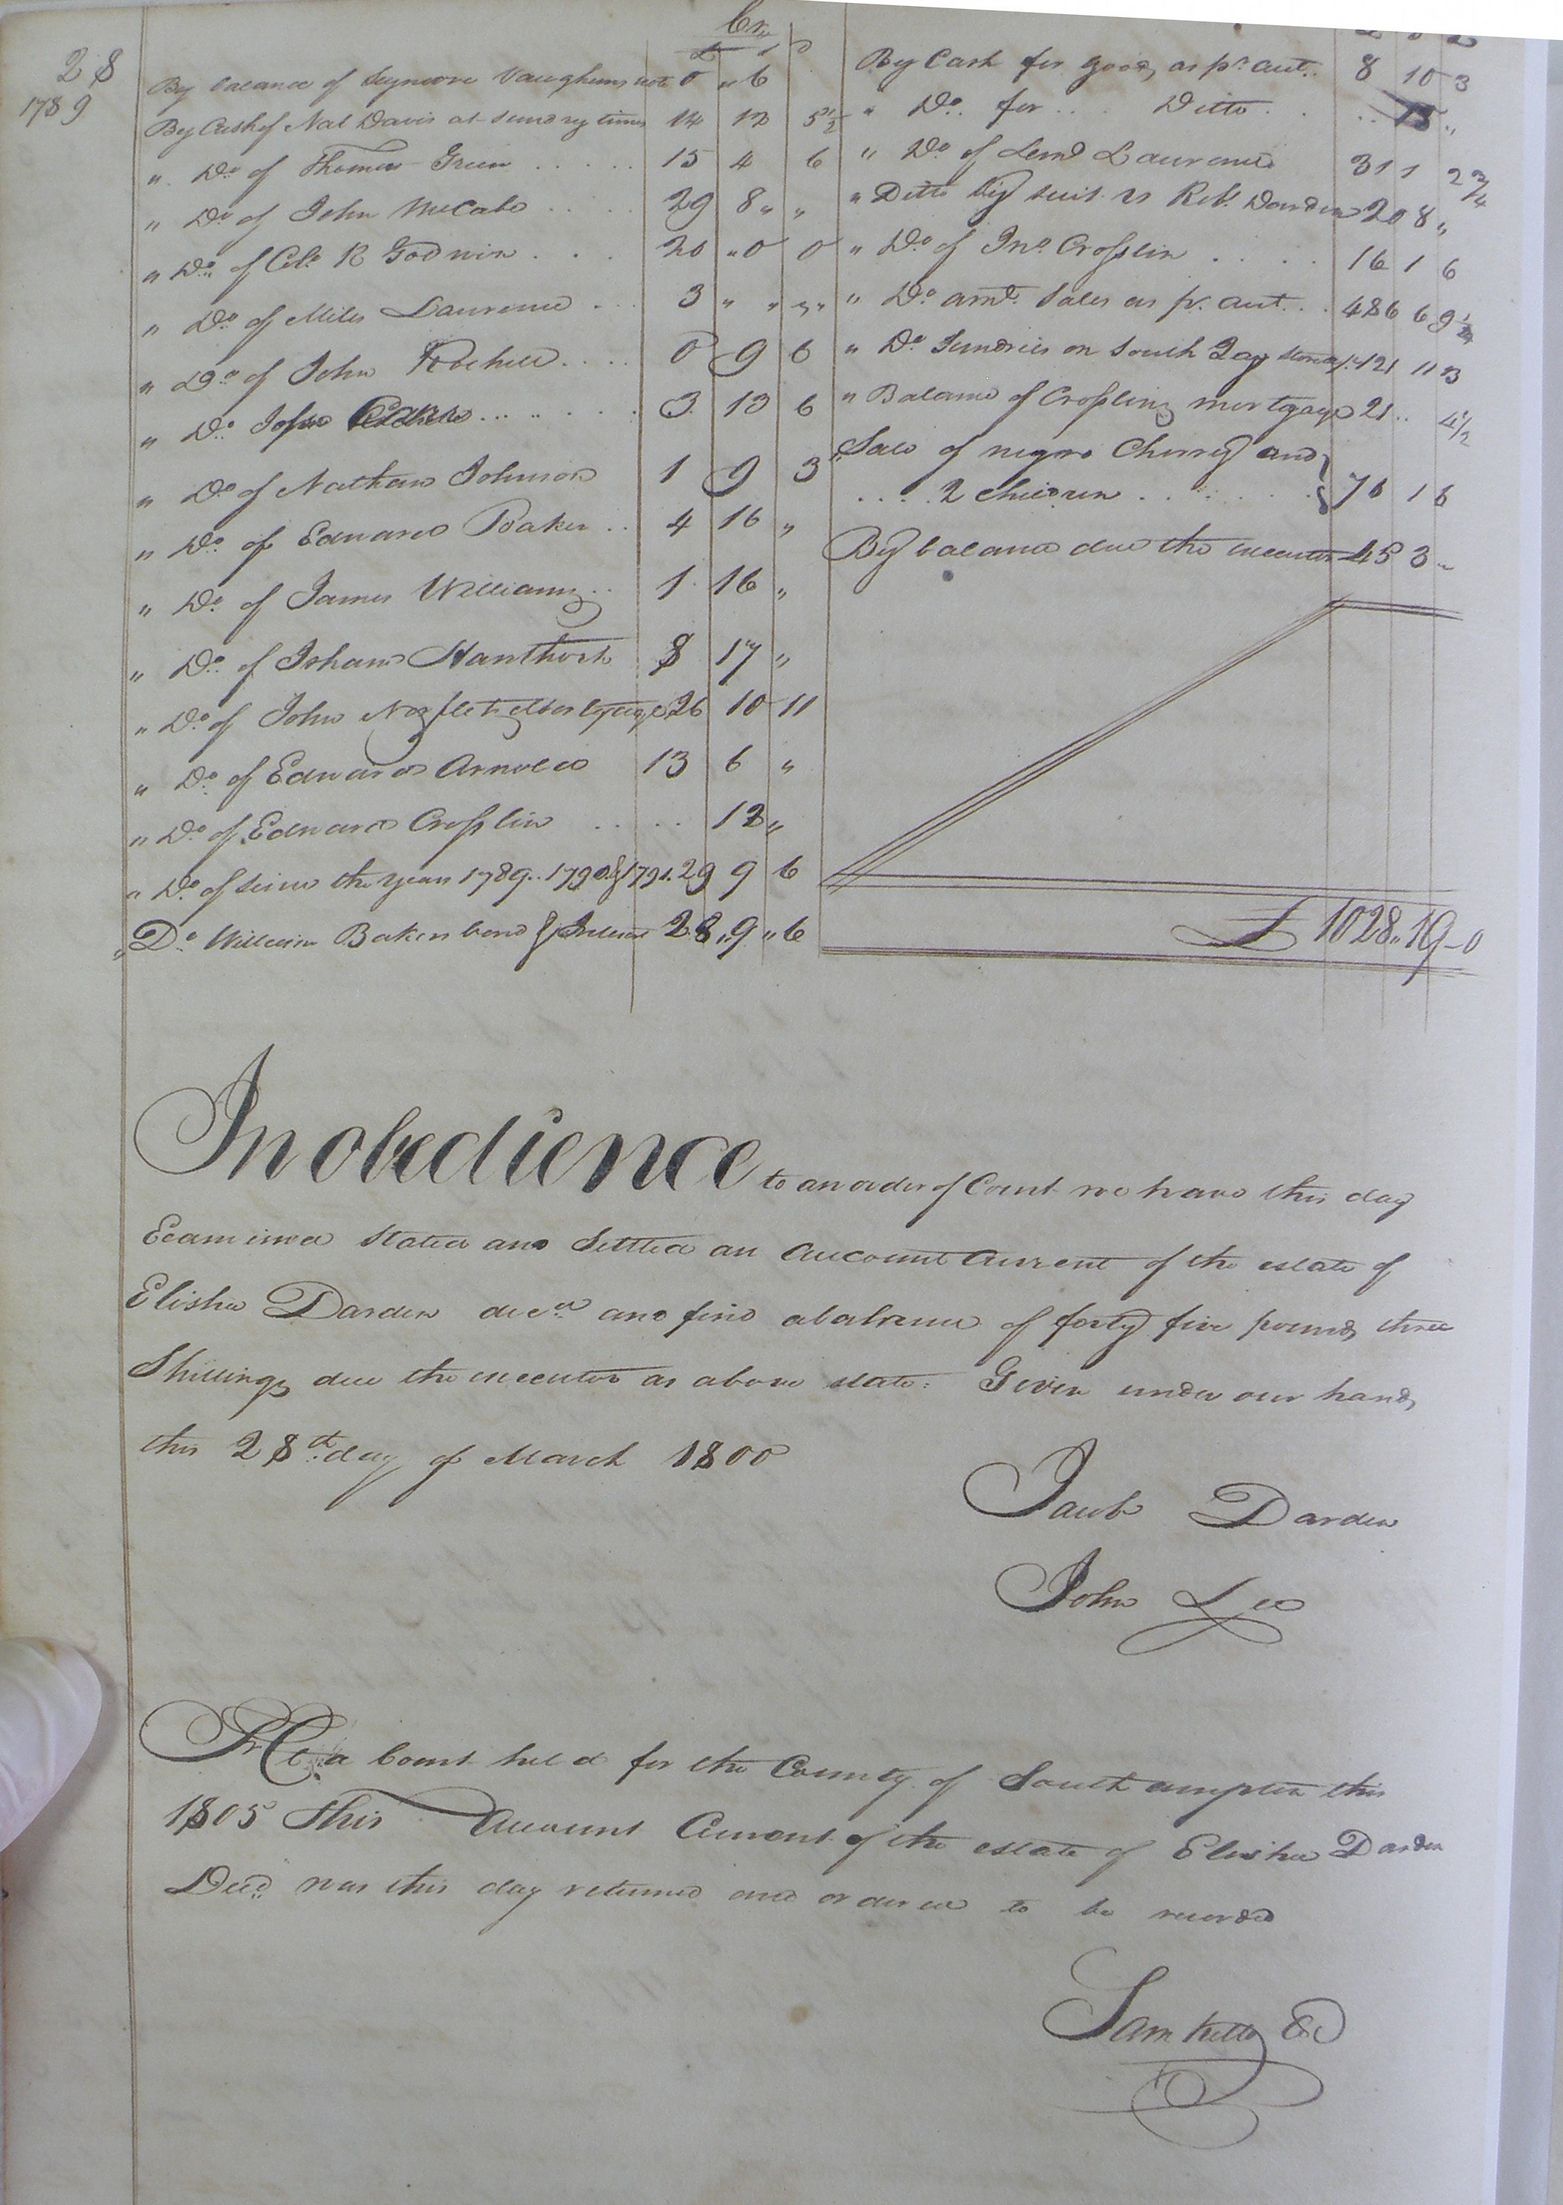 28
1789
Cr.
£ s D
By balance of Seymore Vaughans note 0 " 6
By Cash of Nat Davis at sundry times 14 12 5 1/2
" Do. of Thomas Green . . . . . 15 4 6
" Do of John McCabe . . . . 29 8 " "
" Do. of Colo. R Godwin . . . 20 " 0 0
" Do. of Miles Laurence . . . 3 " " "
" Do of John Rochell . . . . 0 9 6
" Do. . . . . . . 3. 13 6
" Do of Nathan Johnson 1 9 3
" Do. of Edward Baker . . 4 16 "
" Do. of James Williams . . 1 16 "
" Do. of Isham Hanthorn 8 17 "
" Do. of John 26 10 11
" Do. of Edward Arnold 13 6 "
" Do. of Edward Crosslin . . . . 12 "
" Do. of since the years 1789. 1790 & 1791. 29 9 6
" Do. William Bakers bond & Interest 28 " 9 " 6
By Cash for goods as pr. acct. 8 10 3
" Do. for . . . . Ditto . . . . 15 "
" Do. of Laurence 311 2 3/4
" Ditto by suit vs Robt. Darden 20 8 "
" Do. of Jno. Crosslin . . . . 16 1 6
" Do. amt. Sales as pr. acct. . . 486 6 9 1/2
" Do Sundries on South Quay 121 11 3
" Balance of Crosslins mortgage 21 . . 4 1/2
" Sale of negro Cherry and
. . . . 2 children . . . . . . . 76 1 6
By balance due the executor 45 3 "
£ 1028 " 19 - 0
In obedience to an order of Court we have this day
Examined Stated and Settled an Account Current of the estate of
Elisha Darden decd. and find a balance of forty five pounds three
Shillings due the executor as above state: Given under our hands
this 28th. day of March 1800
Jacob Darden
John Lee
At a Court held for the County of Southampton this
1805 This Account Current of the estate of Elisha Darden
Decd. was this day returned and ordered to be recorded
Sam Kello CC